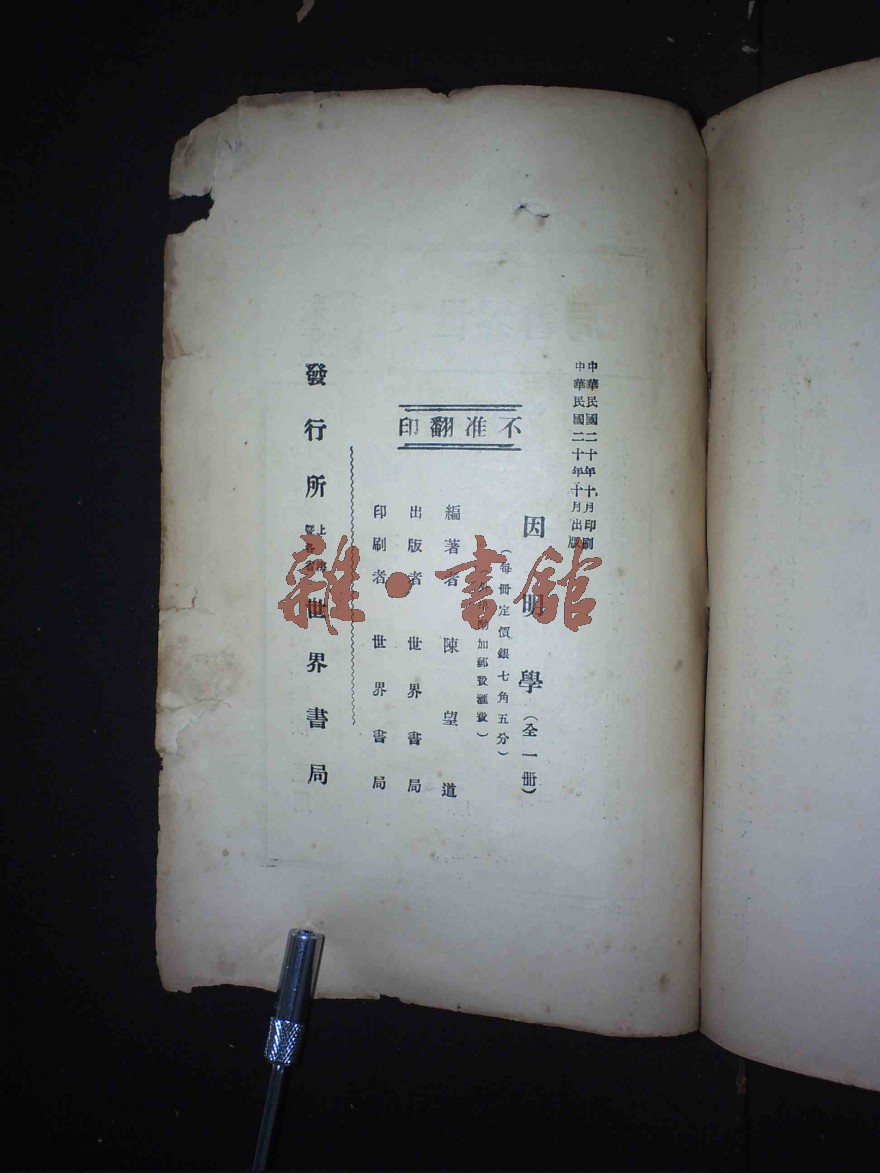 中華民國二十年十月印刷
中華民國二十年十月出版
不准翻印
因明學(全一冊)
(每冊定價銀七角五分)
加郵費滙費)
編著者 陳望道
出版者 世界書局
印刷者 世界書局
發行所 上海暨各省 世界書局
雜·書館